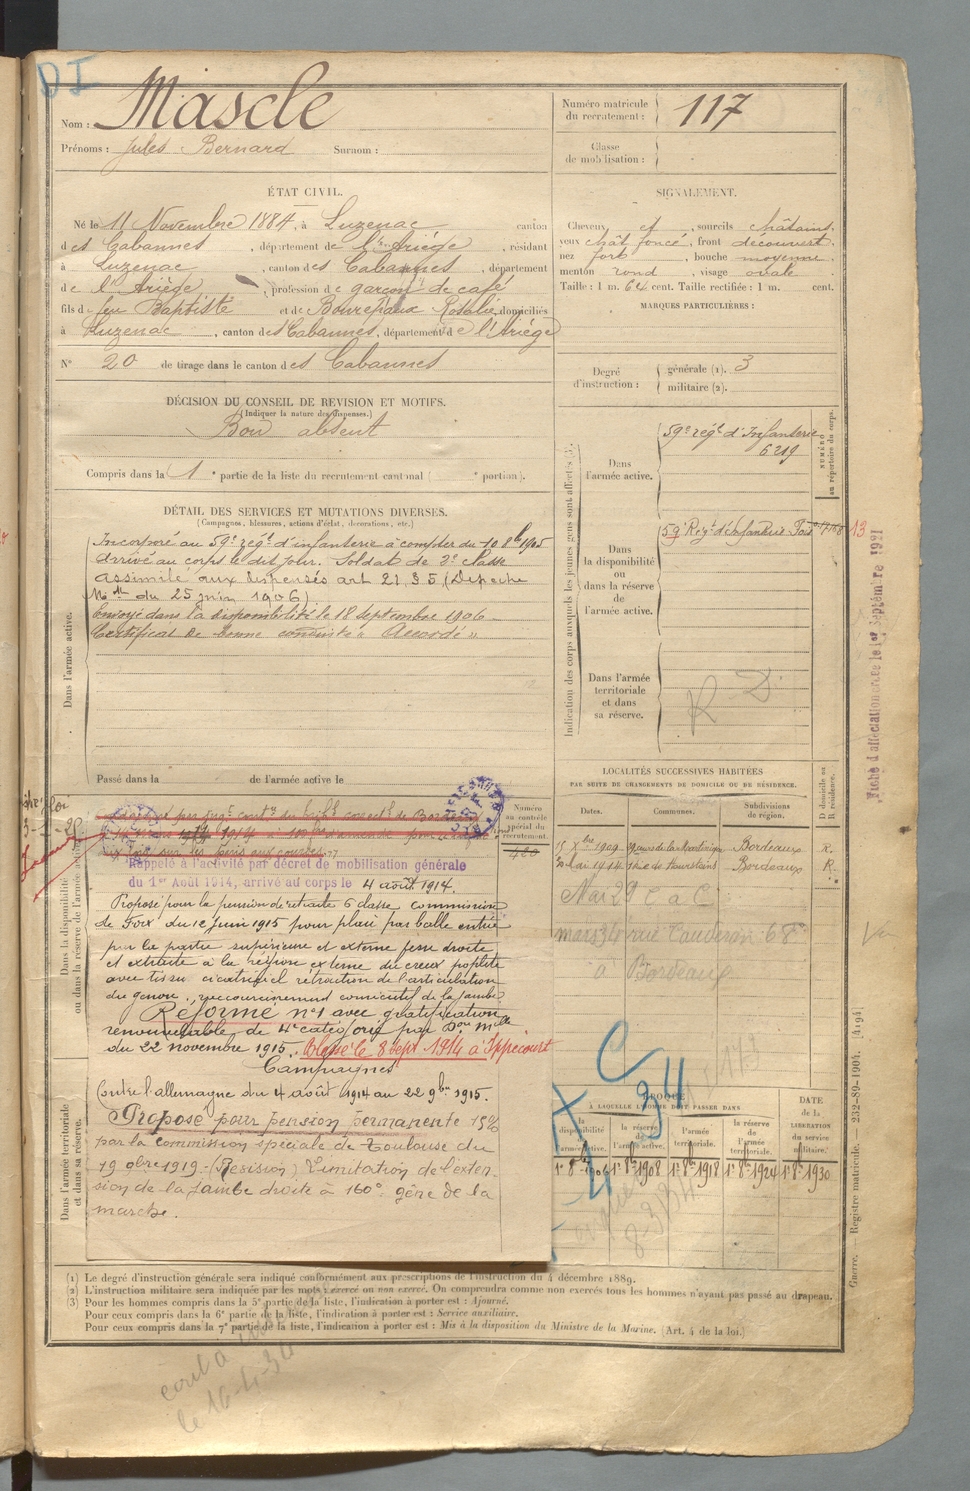 DI
Nom : Mascle
Prénoms : Jules Bernard Surnom :
Numéro matricule du recrutement : 117
Classe de mobilisation :
ÉTAT CIVIL.
Né le 11 Novembre 1884, à Luzenac canton
des Cabannes, département de l'Ariège, résidant
à Luzenac, canton des Cabannes, département
de l'Ariège, profession de garçon de café
fils de feu Baptiste et de Bonrepaux Rosalie, domiciliés
à Luzenac, canton des Cabannes, département de l'Ariège
N° 20 de tirage dans le canton des Cabannes
SIGNALEMENT.
Cheveux et, sourcils châtains,
yeux chât foncé, front découvert,
nez fort, bouche moyenne,
menton rond, visage ovale.
Taille : 1 m. 64 cent. Taille rectifiée : 1 m. cent.
MARQUES PARTICULIÈRES :
Degré d'instruction : générale (1). 3
militaire (2).
DÉCISION DU CONSEIL DE REVISION ET MOTIFS.
(Indiquer la nature des dispenses.)
Bon absent
Compris dans la 1e partie de la liste du recrutement cantonal ( e portion).
DÉTAIL DES SERVICES ET MUTATIONS DIVERSES.
(Campagnes, blessures, actions d'éclat, décorations, etc.)
Dans l'armée active.
Incorporé au 59e régt d'infanterie à compter du 10 8bre 1905
Arrivé au corps le dit jour. Soldat de 2e classe
Assimilé aux dispensés art 21, § 5 (Dépêche
Melle du 25 juin 1906)
Envoyé dans la disponibilité le 18 septembre 1906
Certificat de bonne conduite « Accordé »
Passé dans la de l'armée active le
Indication des corps auxquels les jeunes gens sont affectés (3).
NUMÉRO au répertoire du corps.
Dans l'armée active.
59e régt d'Infanterie
6219
Dans la disponibilité ou dans la réserve de l'armée active.
59e Régt d'Infanterie Foix
13
Dans l'armée territoriale et dans sa réserve.
R D
Fiche d'affectation créée le 1er Septembre 1921
Dans la disponibilité ou dans la réserve de l'armée active.
Numéro au contrôle spécial du recrutement.
420
Rappelé à l'activité par décret de mobilisation générale
du 1er Août 1914, arrivé au corps le 4 août 1914.
Proposé pour la pension de retraite 6 classe commission
de Foix du 12 juin 1915 pour plaie par balle entrée
par la partie supérieure et externe fesse droite
et extraite à la région externe du creux poplité
avec tissu cicatriciel rétraction de l'articulation
du genou, raccourcissement consécutif de la jambe
Réforme n°1 avec gratification
renouvelable de 4e catégorie par Don Mlle
du 22 novembre 1915. Blessé le 8 sept 1914 à Ippécourt
Campagnes
Contre l'allemagne du 4 août 1914 au 22 9bre 1915.
Proposé pour pension permanente 15%
par la commission spéciale de Toulouse du
19 9bre 1919 - (Revision) Limitation de l'exten
sion de la jambe droite à 160° gêne de la
marche.
Dans l'armée territoriale et dans sa réserve.
LOCALITÉS SUCCESSIVES HABITÉES
PAR SUITE DE CHANGEMENTS DE DOMICILE OU DE RÉSIDENCE.
Dates. Communes. Subdivisions de région. D domicile ou R résidence.
15 Xbre 1909 Bordeaux R.
Mai 1914 Bordeaux R.
Mai 29 C a C
mars 34 rue Cauderan 68
à Bordeaux
C
34
ÉPOQUE
À LAQUELLE L'HOMME DOIT PASSER DANS
la disponibilité de l'armée active. la réserve de l'armée active. l'armée territoriale. la réserve de l'armée territoriale. DATE de la LIBÉRATION du service militaire.
1er 8bre 1906 1er 8bre 1908 1er 8bre 1918 1er 8bre 1924 1er 8bre 1930
8-3-34
(1) Le degré d'instruction générale sera indiqué conformément aux prescriptions de l'instruction du 4 décembre 1889.
(2) L'instruction militaire sera indiquée par les mots exercé ou non exercé. On comprendra comme non exercés tous les hommes n'ayant pas passé au drapeau.
(3) Pour les hommes compris dans la 5e partie de la liste, l'indication à porter est : Ajourné.
Pour ceux compris dans la 6e partie de la liste, l'indication à porter est : Service auxiliaire.
Pour ceux compris dans la 7e partie de la liste, l'indication à porter est : Mis à la disposition du Ministre de la Marine. (Art. 4 de la loi.)
Guerre. Registre matricule. — 232-89-1904. [4194]
le 16-4-34